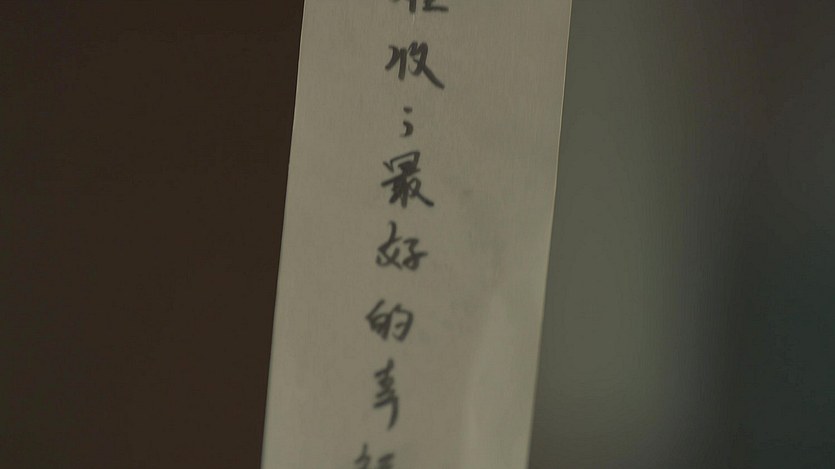 收；最好的幸